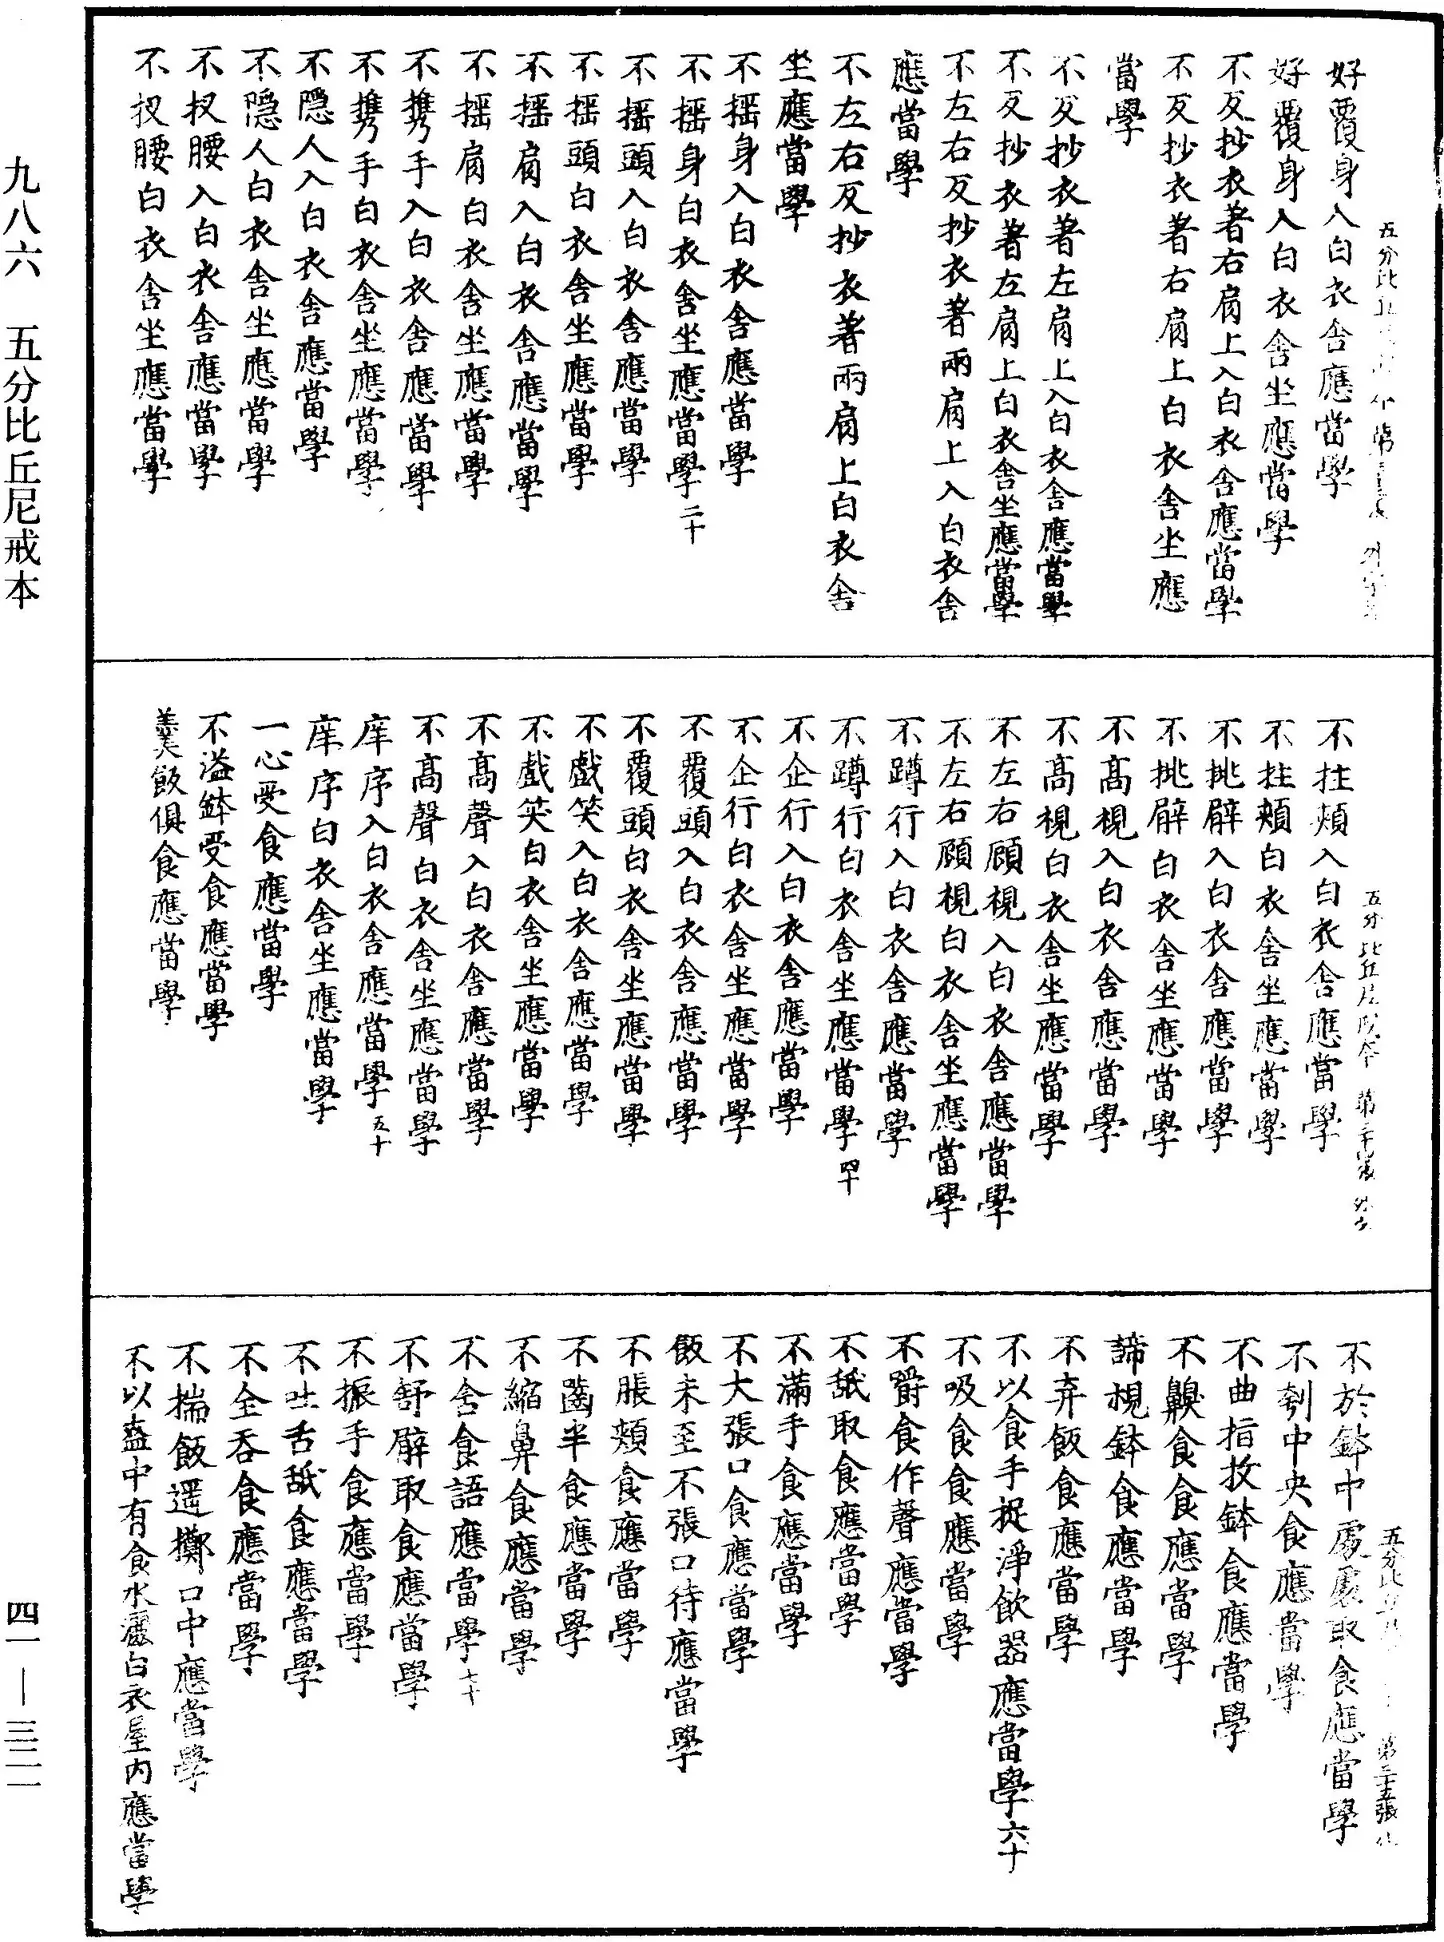 好覆身入白衣舍應當學
好覆身入白衣舍坐應當學
不反抄衣著右肩上入白衣舍應當學
不反抄衣著右肩上白衣舍坐應
當學
不反抄衣著左肩上入白衣舍應當學
不反抄衣著左肩上白衣舍坐應當學
不左右反抄衣著兩肩上入白衣舍
應當學
不左右反抄衣著兩肩上白衣舍
坐應當學
不摇身入白衣舍應當學
不摇身白衣舍坐應當學二十
不摇頭入白衣舍應當學
不摇頭白衣舍坐應當學
不摇肩入白衣舍應當學
不摇肩白衣舍坐應當學
不携手入白衣舍應當學
不携手白衣舍坐應當學
不隱人入白衣舍應當學
不隱人白衣舍坐應當學
不扠腰入白衣舍應當學
不扠腰白衣舍坐應當學
不拄頰入白衣舍應當學
不拄頰白衣舍坐應當學
不挑臂入白衣舍應當學
不挑臂白衣舍坐應當學
不高視入白衣舍應當學
不高視白衣舍坐應當學
不左右顧視入白衣舍應當學
不左右顧視白衣舍坐應當學
不蹲行入白衣舍應當學
不蹲行白衣舍坐應當學四十
不企行入白衣舍應當學
不企行白衣舍坐應當學
不覆頭入白衣舍應當學
不覆頭白衣舍坐應當學
不戲笑入白衣舍應當學
不戲笑白衣舍坐應當學
不高聲入白衣舍應當學
不高聲白衣舍坐應當學
庠序入白衣舍應當學五十
庠序白衣舍坐應當學
一心受食應當學
不溢鉢受食應當學
羹飯俱食應當學
不於鉢中處處取食應當學
不刳中央食應當學
不曲指抆鉢食應當學
不齅食食應當學
諦視鉢食應當學
不弃飯食應當學
不以食手捉淨飲器應當學六十
不吸食食應當學
不嚼食作聲應當學
不舐取食應當學
不滿手食應當學
不大張口食應當學
飯未至不張口待應當學
不脹頰食應當學
不齧半食應當學
不縮鼻食應當學
不含食語應當學七十
不舒臂取食應當學
不振手食應當學
不吐舌舐食應當學
不全吞食應當學
不揣飯遥擲口中應當學
不以盋中有食水灑白衣屋内應當學
五分比丘尼戒本 第二十五張
九八六 五分比丘尼戒本
四一—三二一